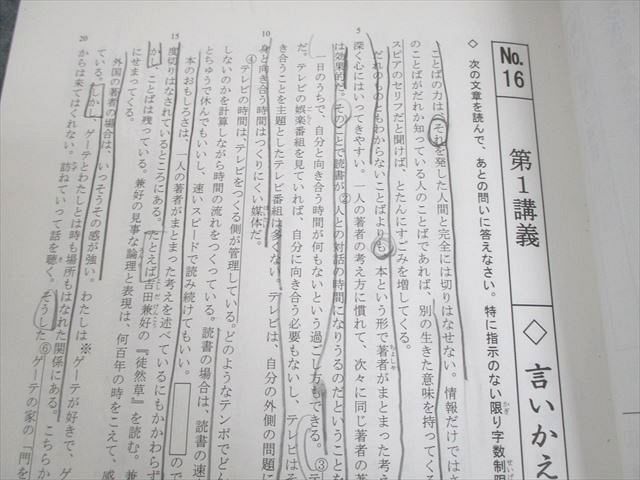 No.
16
第1講義
◇ 言いかえ
◇ 次の文章を読んで、あとの問いに答えなさい。特に指示のない限り字数制限
かぎ
せいげ
ことばの力は、それを発した人間と完全には切りはなせない。情報だけではさ
のことばがだれか知っている人のことばであれば、別の生きた意味を持ってくる
スピアのセリフだと聞けば、とたんにすごみを増してくる。
5
だれのものともわからないことばよりも、本という形で著者がまとまった考え
ちょしゃ
深く心にはいってきやすい。一人の著者の考え方に慣れて、次々に同じ著者の著
は効果的だ。そのことで読書が②人との対話の時間になりうるのだということを
一日のうちで、自分と向き合う時間が何もないという過ごし方もできる。③テ
だ。テレビの娯楽番組を見ていれば、自分に向き合う必要もないし、テレビはそ
ごらく
き合うことを主題としたテレビ番組は多くない。テレビは、自分の外側の問題に
10
身と向き合う時間はつくりにくい媒体だ。
ばいたい
④テレビの時間は、テレビをつくる側が管理している。どのようなテンポでどん
しないのかを計算しながら時間の流れをつくっている。読書の場合は、読書の速
とちゅうで休んでもいいし、速いスピードで読み続けてもいい。
本のおもしろさは、一人の著者がまとまった考えを述べているにもかかわらず
15
度切りはなされているところにある。たとえば吉田兼好の『徒然草』を読む。兼
かし、ことばは残っている。兼好の見事な論理と表現は、何百年の時をこえて、感
にせまってくる。
外国の著者の場合は、いっそうその感が強い。わたしは※ゲーテが好きで、ゲ
ている。しかし、ゲーテとわたしとは時も場所もはなれた関係にある。こちらか
20
からは来てはくれない。訪ねていって話を聴く。そうした⑥ゲーテの家の「門を